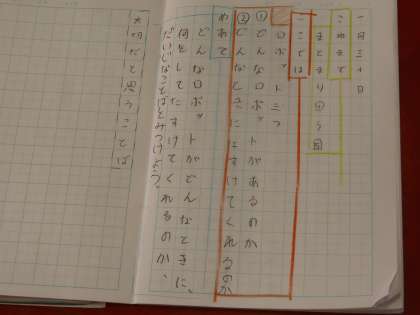 一月三十日
これまで
まとまり①〜④
ここでは
ロボット三つ
①どんなロボットがあるのか
②どんなときにたすけてくれるのか
めあて
どんなロボットがどんなときに、
何をしてたすけてくれるのか、
だいじなことばをみつけよう。
大切だと思うことば